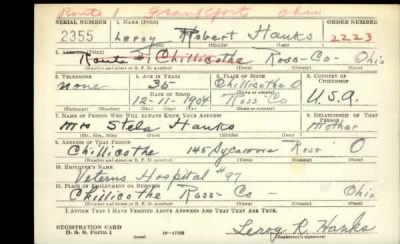 Route 1 Frankfort, Ohio
SERIAL NUMBER 1. NAME (Print) ORDER NUMBER
2355 Leroy Robert Hanks 2223
(First) (Middle) (Last)
2. ADDRESS (Print)
Route #1 Chillicothe Ross-Co- Ohio
(Number and street or R. F. D. number) (Town) (County) (State)
3. TELEPHONE 4. AGE IN YEARS 5. PLACE OF BIRTH 6. COUNTRY OF CITIZENSHIP
none 35 Chillicothe O
DATE OF BIRTH Ross-Co- U.S.A.
12-11-1904
(Exchange) (No.) (Mo.) (Day) (Yr.) (State or country)
7. NAME OF PERSON WHO WILL ALWAYS KNOW YOUR ADDRESS 8. RELATIONSHIP OF THAT PERSON
Mrs Stela Hanks Mother
(Mr., Mrs., Miss) (First) (Middle) (Last)
9. ADDRESS OF THAT PERSON
Chillicothe 145 Sycamore Ross O
(Number and street or R. F. D. number) (Town) (County) (State)
10. EMPLOYER'S NAME
Veterns Hospital #97
11. PLACE OF EMPLOYMENT OR BUSINESS
Chillicothe Ross-Co- Ohio
(Number and street or R. F. D. number) (Town) (County) (State)
I AFFIRM THAT I HAVE VERIFIED ABOVE ANSWERS AND THAT THEY ARE TRUE.
REGISTRATION CARD
D. S. S. Form 1 Leroy R Hanks
(Registrant's signature)